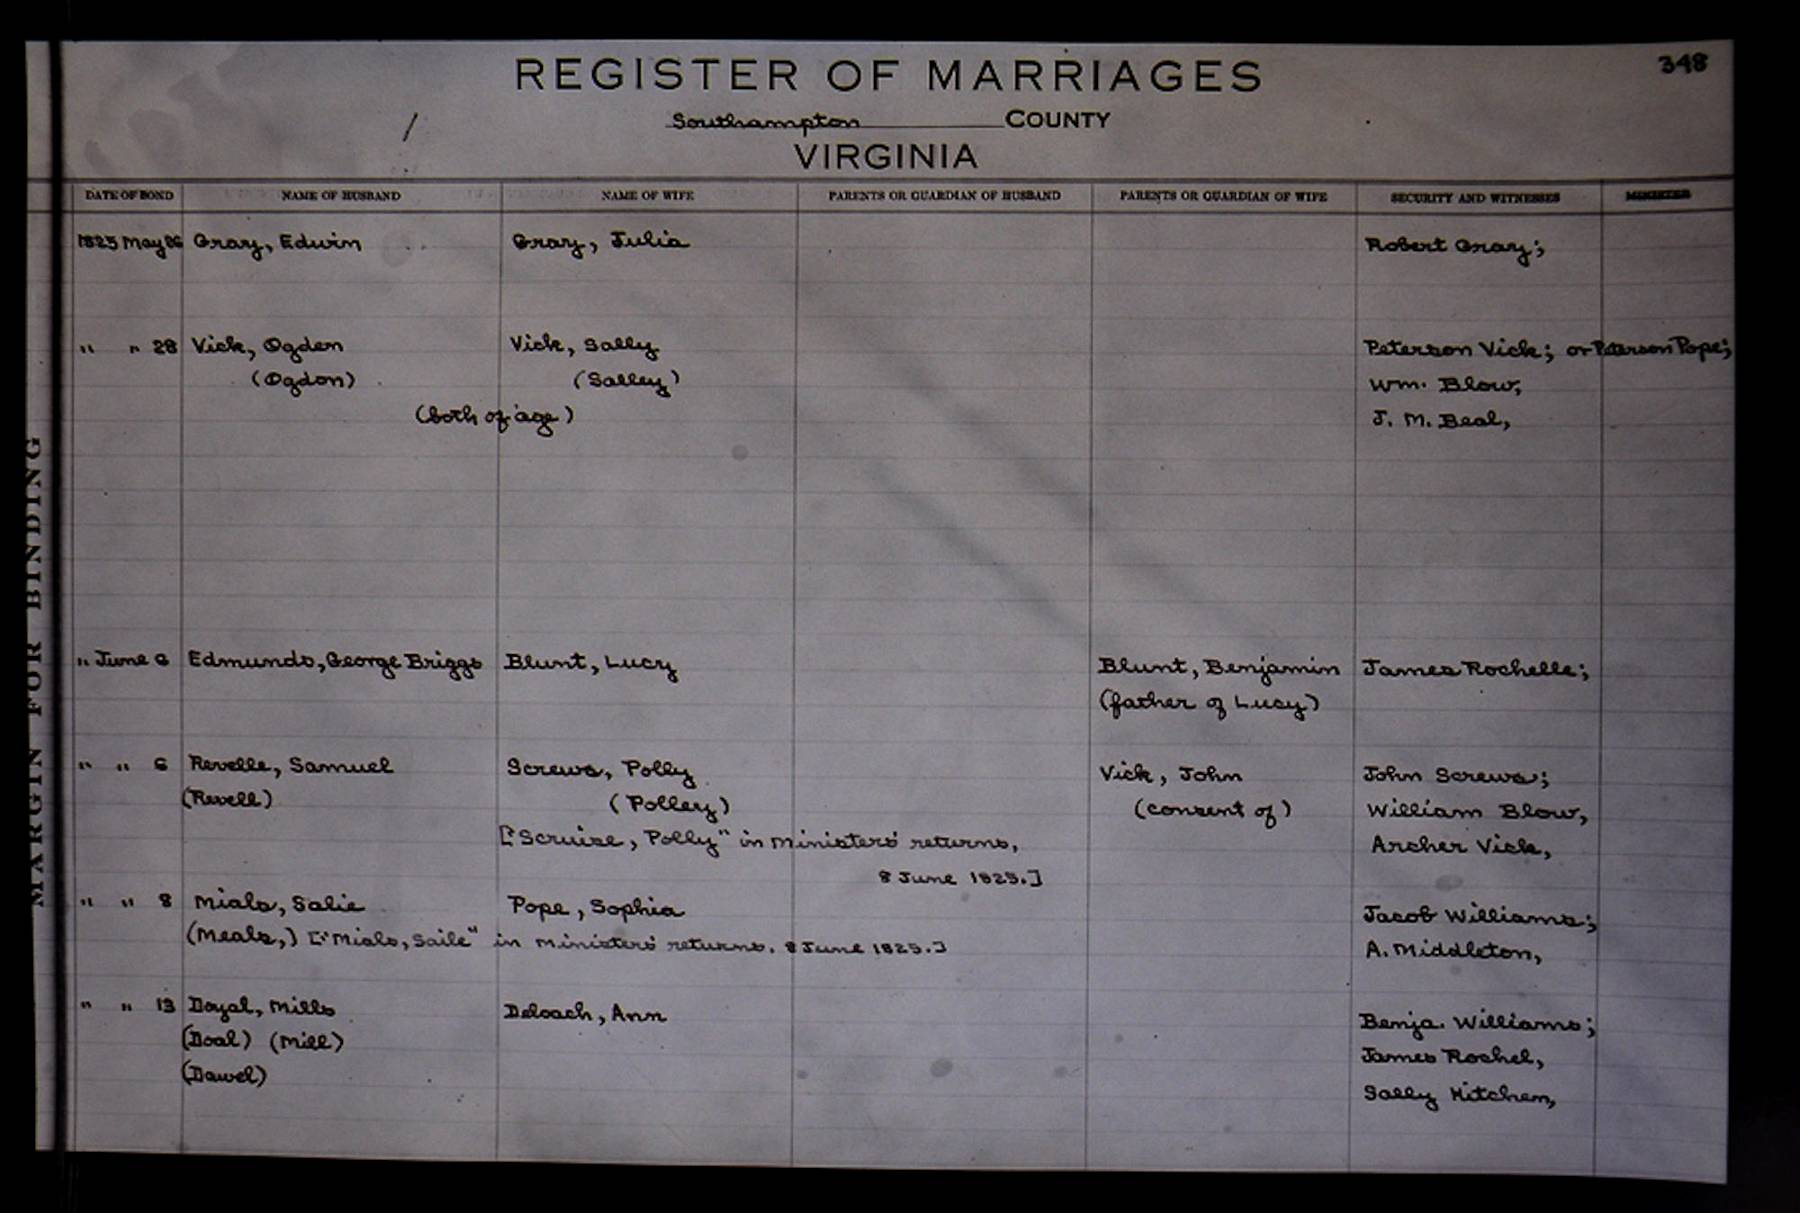 348
REGISTER OF MARRIAGES
Southampton COUNTY
VIRGINIA
DATE OF BOND NAME OF HUSBAND NAME OF WIFE PARENTS OR GUARDIAN OF HUSBAND PARENTS OR GUARDIAN OF WIFE SECURITY AND WITNESSES MINISTER
1825 May 26 Gray, Edwin Gray, Julia Robert Gray;
" " 28 Vick, Ogden Vick, Sally Peterson Vick; or Peterson Pope;
(Ogdon) (Salley) Wm. Blow,
(both of age) J. M. Beal,
" June 6 Edmunds, George Briggs Blunt, Lucy Blunt, Benjamin James Rochelle;
(father of Lucy)
" " 6 Revelle, Samuel Screws, Polly Vick, John John Screws;
(Revell) (Polley) (consent of) William Blow,
["Scruise, Polly" in ministers' returns, Archer Vick,
8 June 1825.]
" " 8 Mials, Salie Pope, Sophia Jacob Williams;
(Meals,) ["Mials, Saile" in ministers' returns. 8 June 1825.] A. Middleton,
" " 13 Doyal, Mills Deloach, Ann Benja. Williams;
(Doal) (Mill) James Rochel,
(Dawel) Sally Kitchem,
MARGIN FOR BINDING